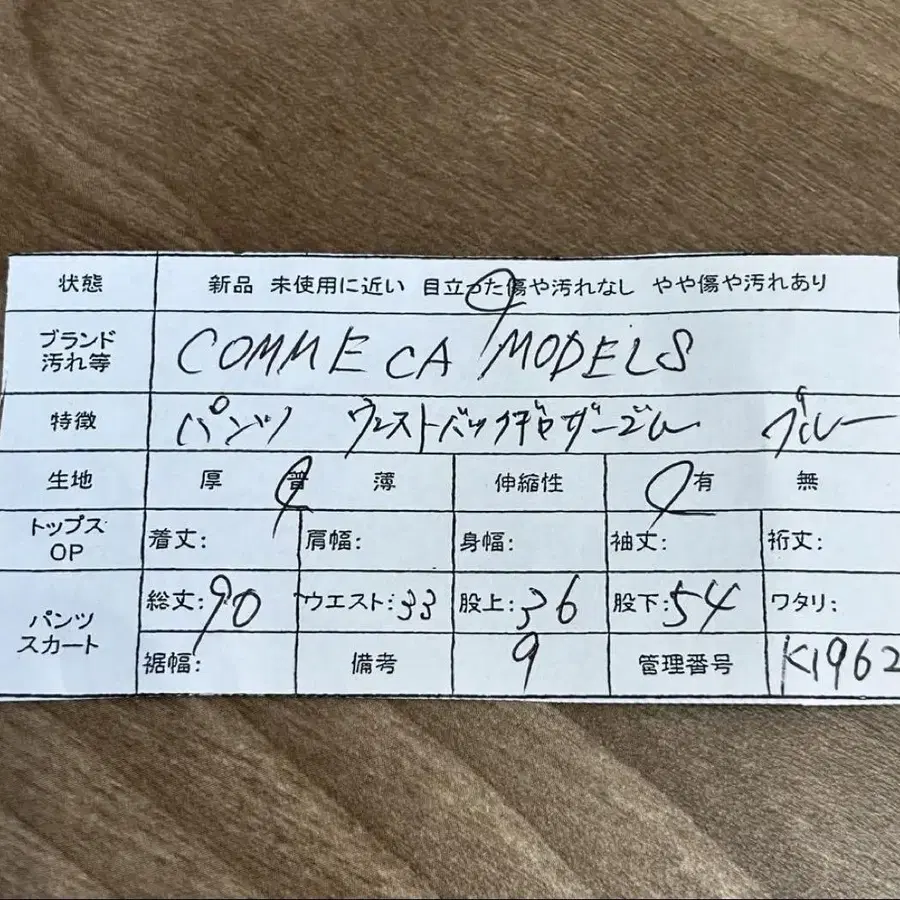 状態 新品 未使用に近い 目立った傷や汚れなし やや傷や汚れあり
ブランド
汚れ等 COMME CA MODELS
特徴 パンツ ウエストバックギャザーゴム ブルー
生地 厚 普 薄 伸縮性 有 無
トップス
OP 着丈: 肩幅: 身幅: 袖丈: 裄丈:
パンツ
スカート 総丈:90 ウエスト:33 股上:36 股下:54 ワタリ:
裾幅: 備考 9 管理番号 K1962